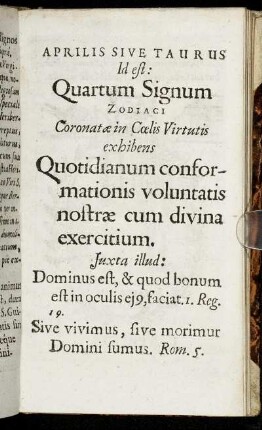 APRILIS SIVE TAURUS
Id est:
Quartum Signum
ZODIACI
Coronatæ in Cœlis Virtutis
exhibens
Quotidianum confor-
mationis voluntatis
nostræ cum divina
exercitium.
Juxta illud:
Dominus est, & quod bonum
est in oculis ej9, faciat. 1. Reg.
19.
Sive vivimus, sive morimur
Domini sumus. Rom. 5.